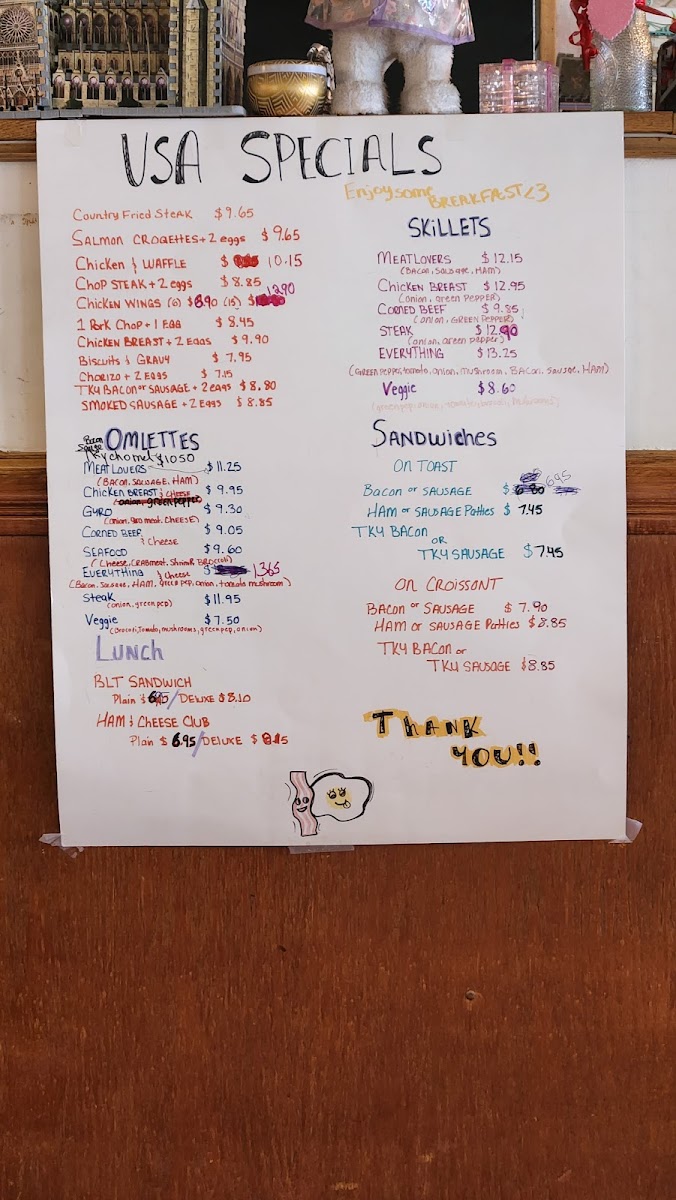 USA SPECIALS
Enjoy some BREAKFAST <3
Country Fried Steak $9.65
Salmon CROQETTES + 2 eggs $9.65
Chicken & WAFFLE $ 10.15
Chop STEAK + 2 eggs $8.85
12.90
Chicken WINGS (6) $8.90 (15) $
1 Pork Chop + 1 EGG $8.45
Chicken BREAST + 2 EGGS $9.90
Biscuits & GRAVY $7.95
Chorizo + 2 EGGS $7.15
TKY BACON or SAUSAGE + 2 EGGS $8.80
SMOKED SAUSAGE + 2 EGGS $8.85
OMLETTES
$10.50
MEAT LOVERS $11.25
(BACON, SAUSAGE, HAM)
Chicken BREAST & CHEESE $9.95
onion, green pepper
GYRO $9.30
(onion, gyro meat, CHEESE)
CORNED BEEF & Cheese $9.05
SEAFOOD $9.60
(Cheese, CRABmeat, Shrimp, BROccoli)
EVERYTHING & Cheese $ 13.65
(Bacon, Sausage, HAM, green pep, onion, tomato mushroom)
Steak $11.95
(onion, green pep)
Veggie $7.50
(Brocori, Tomato, mushrooms, green pep, onion)
LUNCH
BLT SANDWICH
Plain $6.95 / DELUXE $8.10
HAM & CHEESE CLUB
Plain $6.95 / DELUXE $8.15
SKILLETS
MEATLOVERS $12.15
(BACON, SAUSAGE, HAM)
Chicken BREAST $12.95
(onion, green PEPPER)
CORNED BEEF $9.85
(onion, GREEN PEPPER)
STEAK $12.90
(onion, green pepper)
EVERYTHING $13.25
(GREEN PEPPER, tomato, onion, mushroom, BACON, SAUSGE, HAM)
Veggie $8.60
SANDWIChES
ON TOAST
Bacon or SAUSAGE $6.80 6.95
HAM or SAUSAGE Patties $7.45
TKY BACON
or
TKY SAUSAGE $7.45
ON CROISSONT
BACON or SAUSAGE $7.90
HAM or SAUSAGE Patties $8.85
TKY BACON or
TKY SAUSAGE $8.85
THANK
YOU!!